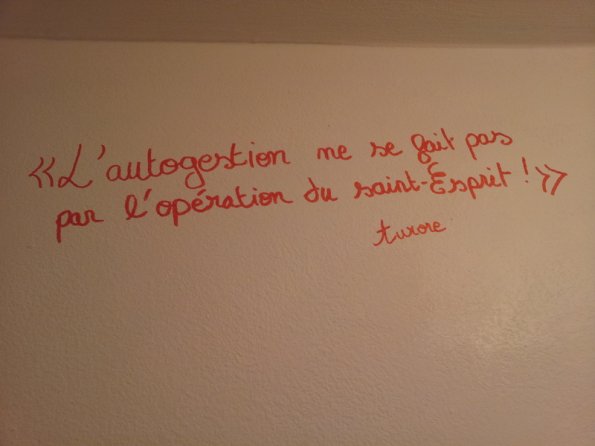 «L'autogestion ne se fait pas
par l'opération du saint-Esprit !»
Aurore